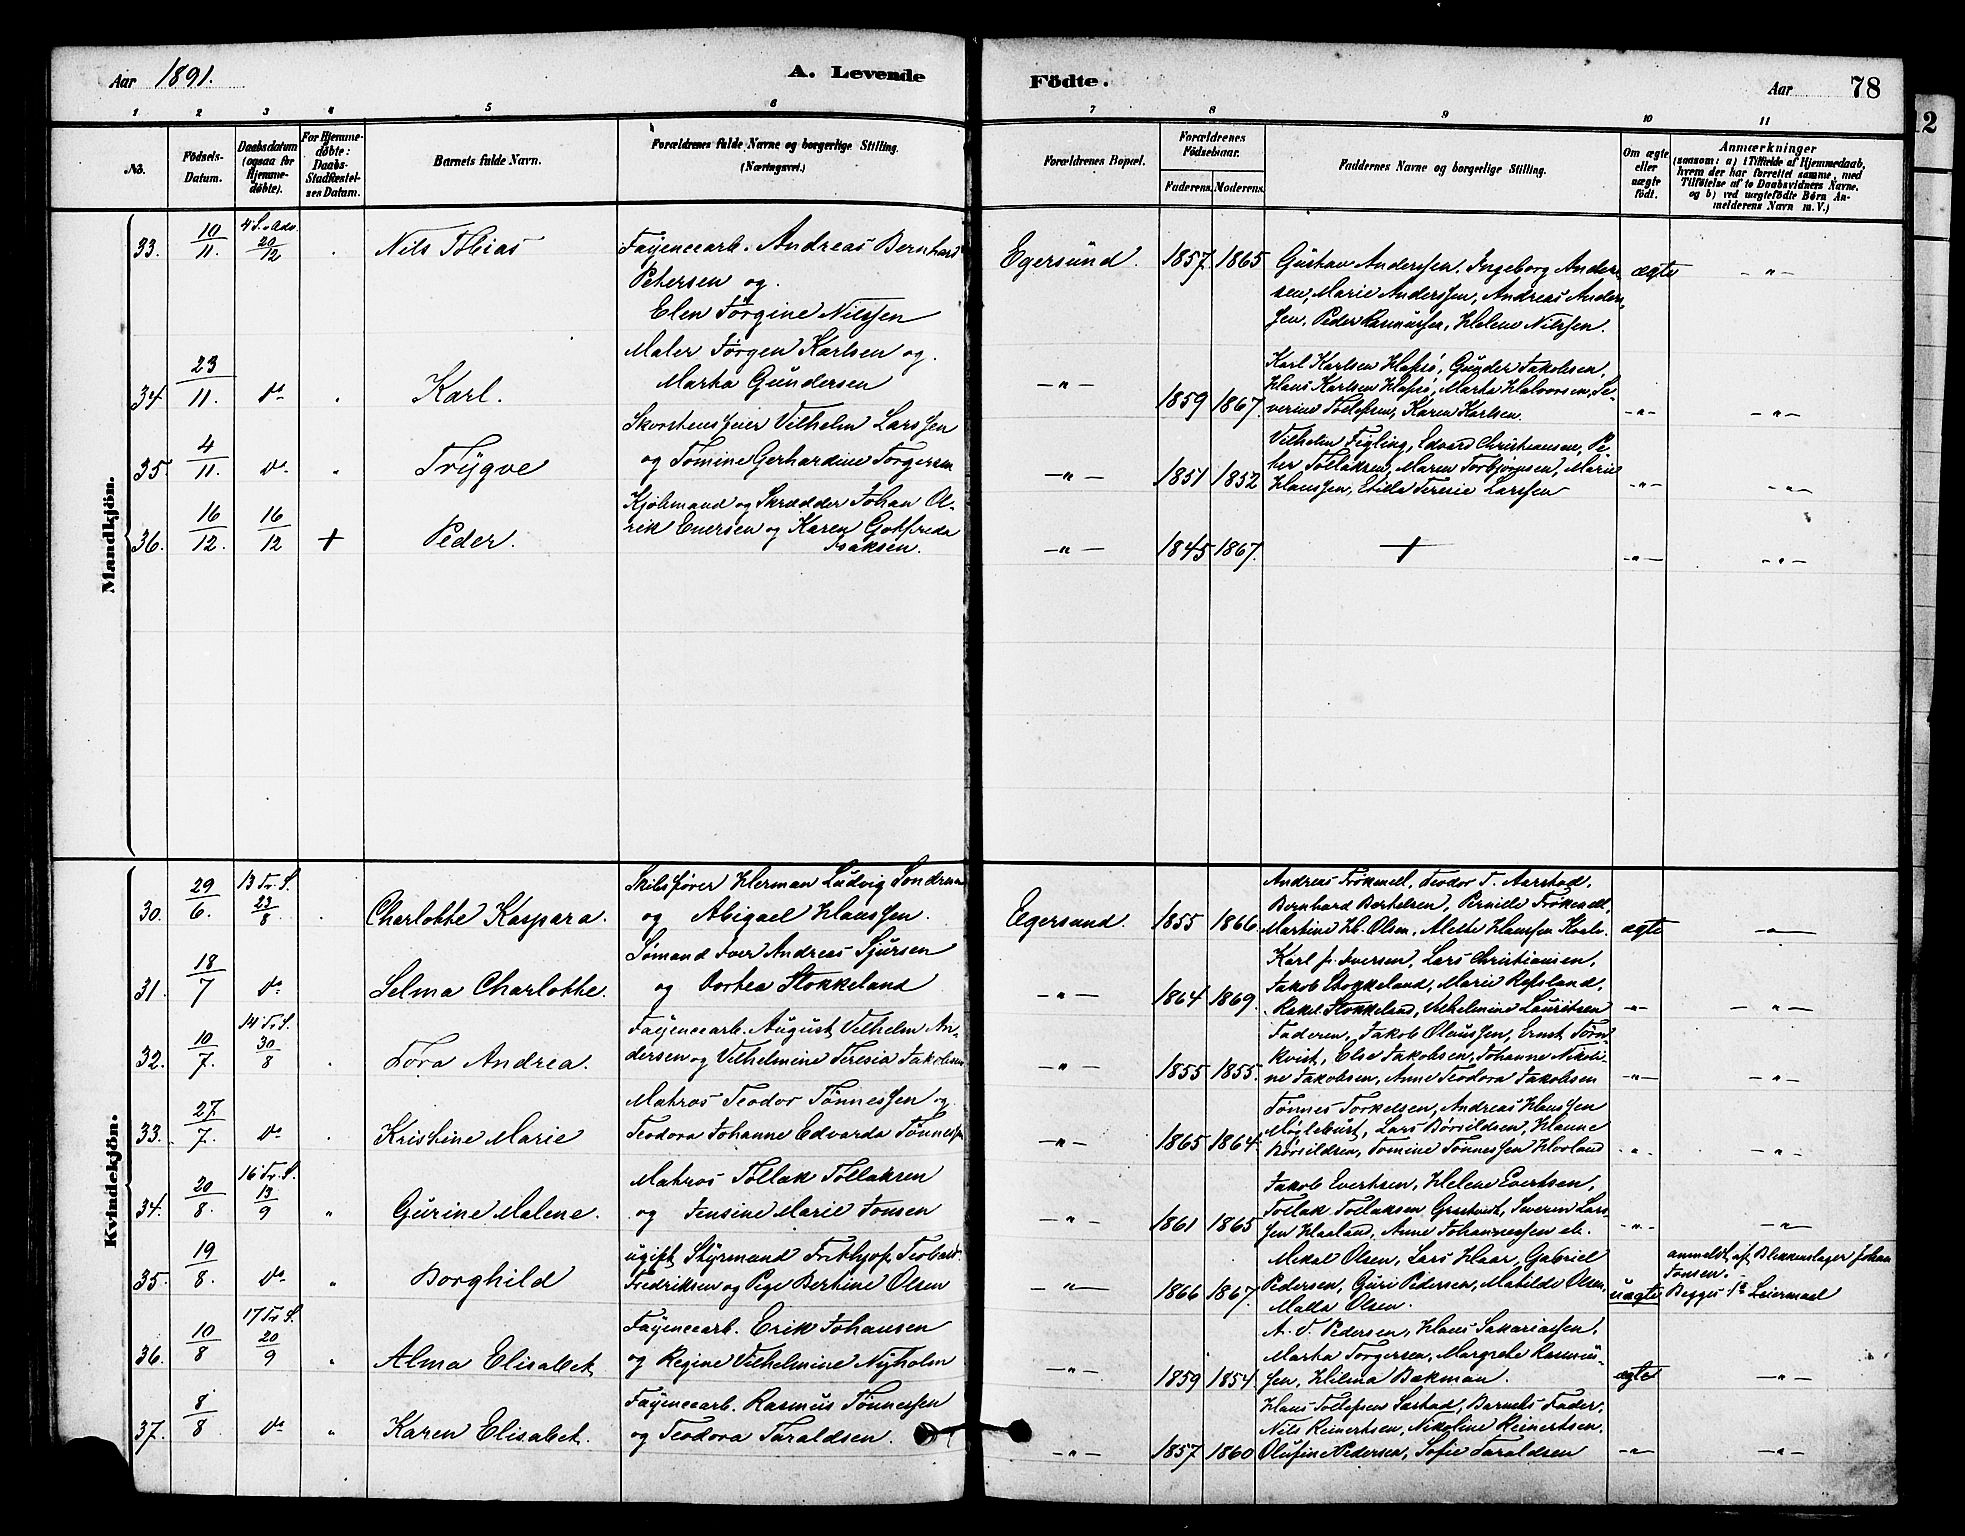 Aar 1891.
A. Levende
Födte.
Aar
78
12
1 2 3 4 5 6 7 8 9 10 11
No.
Födsels-
Datum.
Daabsdatum
(ogsaa for
Hjemme-
döbte).
For Hjemme-
döbte:
Daabs-
Stadfæstel-
ses Datum.
Barnets fulde Navn.
Forældrenes fulde Navne og borgerlige Stilling.
(Næringsvei.)
Forældrenes Bopæl.
Forældrenes
Födselsaar.
Faderens. Moderens.
Faddernes Navne og borgerlige Stilling.
Om ægte
eller
uægte
født.
Anmærkninger
(saasom: a) i Tilfælde af Hjemmedaab,
hvem der har forrettet samme, med
Tilføielse af to Daabsvidners Navne,
og b) ved uægtefødte Børn An-
melderens Navn m. V.)
Mandkjön.
33. 10/11. 4 S. i Adv. 20/12 Nils Tobias
Fayencearb. Andreas Bernhard
Petersen og
Elen Jørgine Nilssen
Egersund. 1857. 1865
Gustav Anderssen, Ingeborg Anders-
sen, Marie Anderssen, Andreas Anders-
sen, Peder Rasmussen, Helene Nilssen.
ægte -"-
34 23/11. do " Karl.
Maler Jørgen Karlsen og
Marta Gundersen
-"- 1859 1867.
Karl Karlsen Hafsö, Gunder Jakobsen,
Hans Karlsen Hafsö, Marta Halvorsen, Se-
verine Tollefsen, Karen Karlsen.
-"- -"-
35. 4/11. do " Trygve
Skorstensfeier Vilhelm Larssen
og Tomine Gerhardine Torgersen
-"- 1851 1852
Vilhelm Figling, Edvard Christiansen, Pe-
ter Tollaksen, Maren Torbjørnsen, Marie
Hanssen, Teresie Larssen
-"- -"-
36. 16/12. 16/12 + Peder.
Kjøbmand og Skrædder Johan Ol-
rik Enersen og Karen Gotfreda
Isaksen.
-"- 1845 1867. + -"- -"-
Kvindekjön.
30. 29/6. 13 Tr. S. 23/8. Charlotte Kaspara.
Skibsfører Herman Ludvig
og Abigael Hanssen.
Egersund. 1855 1866
Andreas Frökenell, Teodor T. Aarstad,
Bernhard Bertelsen, Pernille Frökenell,
Martine H. Olsen, Mette Hanssen
ægte -"-
31 18/7 do Selma Charlotte.
Sømand Iver Andreas Sjursen
og Dortea Stokkeland
-"- 1864 1869.
Karl Fr. Iversen, Lars Christiansen,
Jakob Stokkeland, Marie Refsland,
Rakel Stokkeland, Vilhelmine Lauritsen
-"- -"-
32. 10/7. 14 Tr. S. 30/8 Tora Andrea.
Fayencearb. August Vilhelm An-
dersen og Vilhelmine Teresia Jakobsen
-"- 1855 1855.
Faderen, Jakob Olaussen, Ernst Törn-
kvist, Else Jakobsen, Johanne Nikoli-
ne Jakobsen, Anne Teodora Jakobsen
-"- -"-
33. 27/7. do " Kristine Marie
Matros Teodor Tønnessen og
Teodora Johanne Edvarda Tønnessen
-"- 1865 1864.
Tønnes Torkelsen, Andreas Hanssen
Møglebust, Lars Børildsen, Hanne
Børildsen, Tomine Tønnessen Hovland
" -"-
34. 20/8. 16 Tr. S. 13/9 " Gurine Malene.
Matros Tollak Tollaksen
og Jensine Marie Jonsen
-"- 1861 1865
Jakob Evertsen, Helene Evertsen,
Tollak Tollaksen Severin Lars-
sen Haaland, Anne Johannessen
-"- -"-
35. 19/8. do " Borghild
ugift Styrmand Frithjof Teobald
Fredriksen og Pige Bertine Olsen
-"- 1866 1867.
Mikal Olsen, Lars Haar, Gabriel
Pedersen, Guri Pedersen, Matilde Olsen,
Malla Olsen.
uægte
anmeldt af Blikkenslager Johan
Jonsen.
Begges 1ste Leiermaal
36. 10/8 17 Tr. S. 20/9 " Alma Elisabet
Fayencearb. Erik Johansen
og Regine Vilhelmine Nyholm
-"- 1859 1854
A. V. Pedersen, Hans Sakariassen,
Marta Torgersen, Margrete Rasmus-
sen, Hilma Bakman.
ægte -"-
37. 8/8 do " Karen Elisabet.
Fayencearb. Rasmus Tønnessen
og Teodora Taraldsen.
-"- 1857 1860
Hans Tollefsen Barnets Fader,
Nils Reinertsen, Nikoline Reinertsen,
Olufine Pedersen, Sofie Taraldsen
-"- -"-